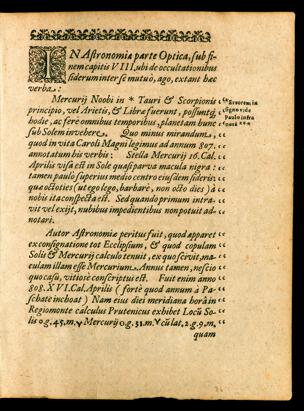 IN Astronomiæ parte Optica, sub fi-
nem capitis VIII, ubi de occultationibus
siderum inter se mutuò, ago, extant hæc
verba:
Mercurij Noobi in * Tauri & Scorpionis
principio, vel Arietis, & Libræ fuerunt, possuntq́
hodie ac ferè omnibus temporibus, planetam hunc
sub Solem invehere. Quo minus mirandum,
quod in vita Caroli Magni legimus ad annum 807.
annotatum his verbis: Stella Mercurij 16. Cal.
Aprilis visa est in Sole quasi parva macula nigra:
tamen paulo superius medio centro ejusdem sideris
quæ octoties (ut ego lego, barbarè, non octo dies) à
nobis ita conspecta est. Sed quando primum intra-
vit vel exijt, nubibus impedientibus non potuit ad-
notari.
Autor Astronomiæ peritus fuit, quod apparet
ex consignatione tot Eclipsium, & quod copulam
Solis & Mercurij calculo tenuit, ex quo scivit, ma-
culam illam esse Mercurium. Annus tamen, nescio
quo casu, vitiosè conscriptus est. Fuit enim anno
808. XVI. Cal. Aprilis (fortè quod annum à Pa-
schate inchoat) Nam eius diei meridiana horâ in
Regiomonte calculus Prutenicus exhibet Locũ So-
lis 0 g. 45. m. ♈ Mercurij 0 g. 31. m. ♈ cũ lat. 2. g. 9. m.
quam
* Errorem in
signo vide
Paulo infra